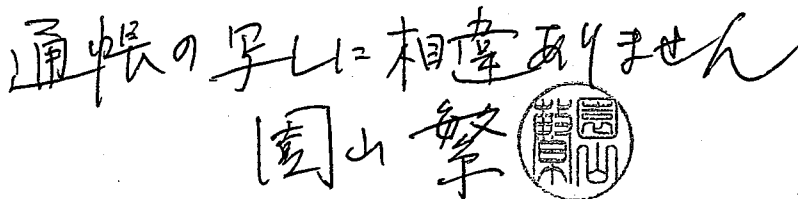 通帳の写しに相違ありません
園山 繁
園山繁